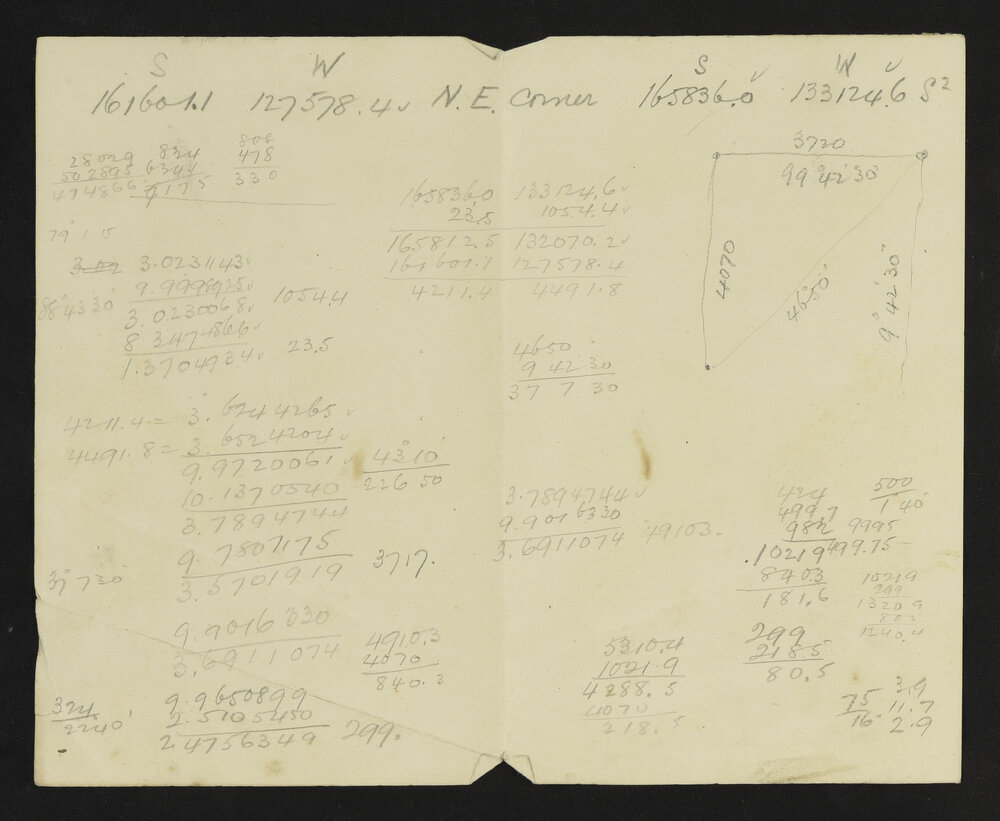 S W S W
161601.1 127578.4 N.E. Corner 165836.0 133124.6 S2
28029 834 808
502895 6344 478
474866 9175 330
79 1 15
3.02 3.0231143
9.9998925
88°43'30 3.0230068 1054.4
8.3474866
1.3704934 23.5
165836.0 133124.6
23.5 1054.4
165812.5 132070.2
161601.1 127578.4
4211.4 4491.8
3720
99°42'30"
4070
46°50'
9°42'30"
4650
9 42 30
37 7 30
4211.4 = 3.6244265
4491.8 = 3.6524204
9.9720061 43°10
10.1370540 226 50
3.7894744
9.7807175 3717.
37°7 30 3.5701919
9.9016330 4910.3
3.6911074 4070
840.3
9.9650899
324 2.5105450
2240' 2.4756349 299.
3.7894744
9.9016330
3.6911074 49103.
424 500
499.7 1°40'
982 9995
10219 499.75
840.3
181.6
10219
299
13209
803
1240.4
5310.4
1021.9
4288.5
4070
218.5
299
218.5
80.5
3.9
75 11.7
16 2.9